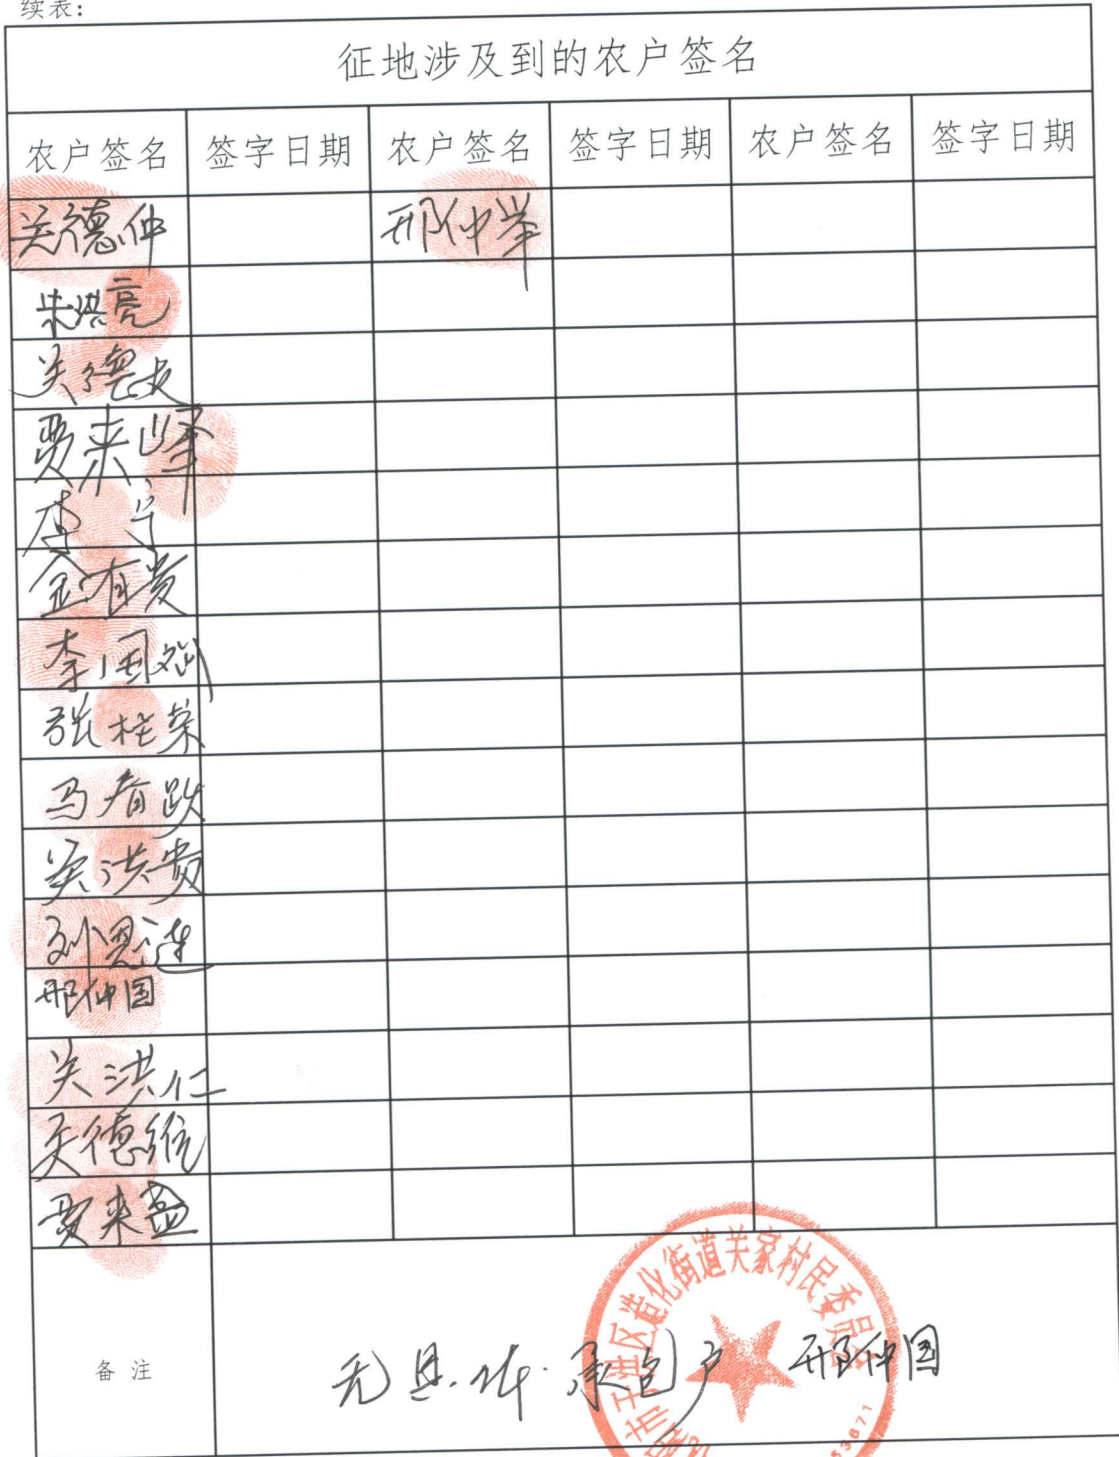 续表:
征地涉及到的农户签名
农户签名 签字日期 农户签名 签字日期 农户签名 签字日期
关德仲 邢仲举
朱洪亮
关德
贾来峰
李宁
金有贵
李国斌
张桂荣
马春跃
关洪贵
刘恩连
邢仲国
关洪仁
关德维
贾来盈
备注
无具体承包户 邢仲国
市于洪区造化街道关家村民委员会
53671